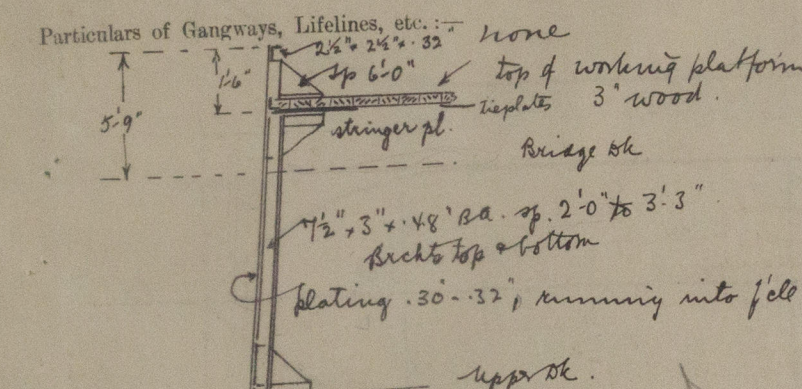 Particulars of Gangways, Lifelines, etc. :—
none
2½" × 2½" × .32"
sp 6'-0"
1'-6"
top of working platform
3" wood.
tieplates
5'-9"
stringer pl.
Bridge Dk
7½" × 3" × .48" BA. sp. 2'-0" to 3'-3"
Brckts top & bottom
plating .30" - .32", running into f'cle
Upper Dk.